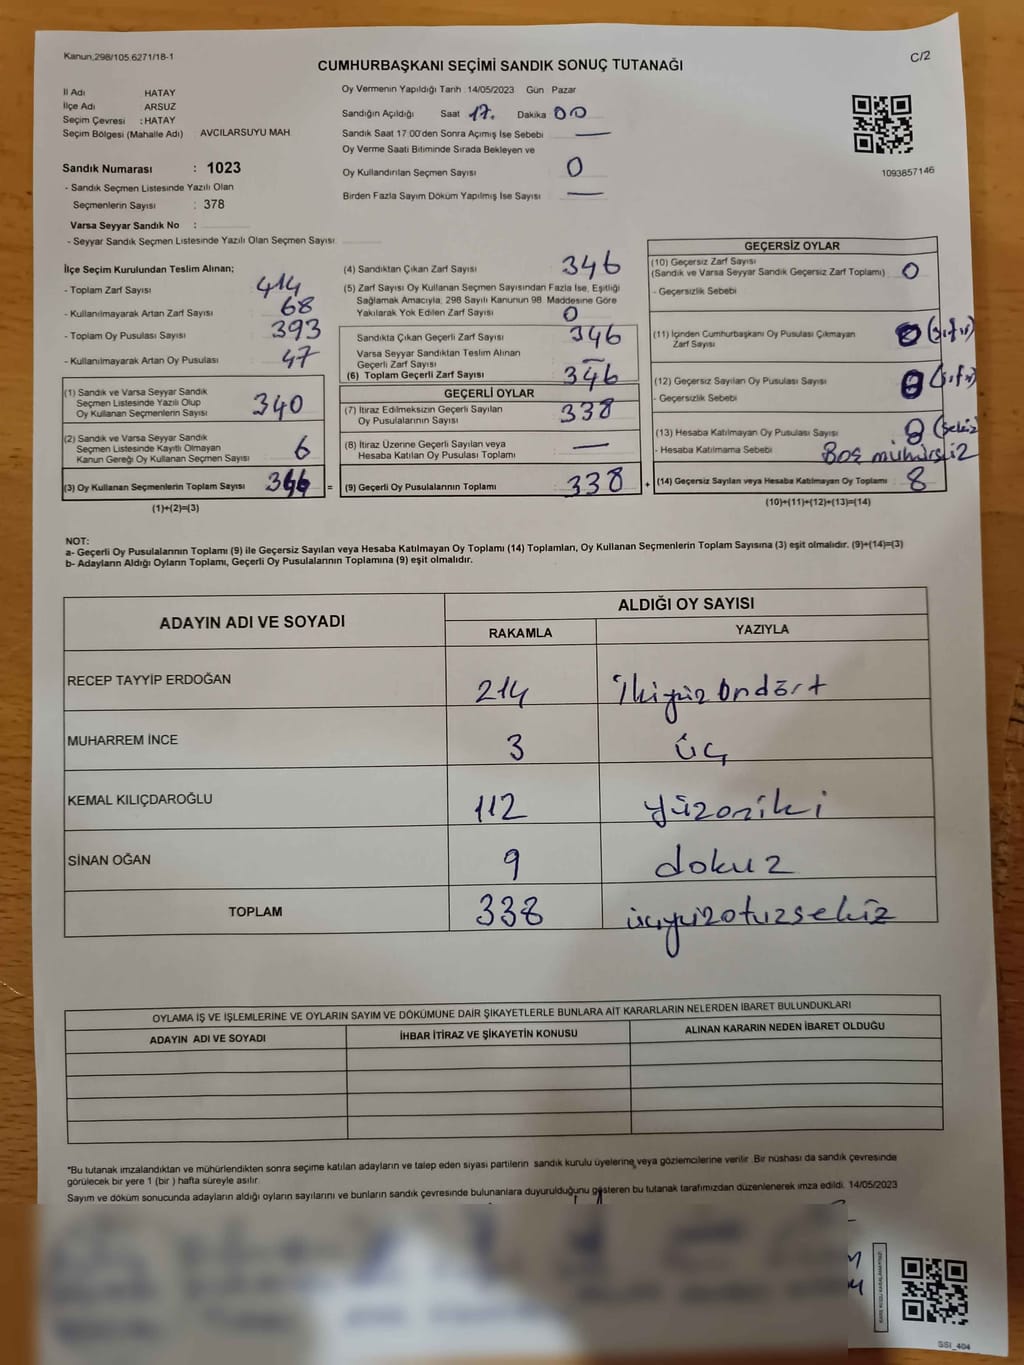 Kanun,298/105.6271/18-1
C/2
CUMHURBAŞKANI SEÇİMİ SANDIK SONUÇ TUTANAĞI
İl Adı HATAY
İlçe Adı ARSUZ
Seçim Çevresi : HATAY
Seçim Bölgesi (Mahalle Adı) AVCILARSUYU MAH.
Sandık Numarası : 1023
- Sandık Seçmen Listesinde Yazılı Olan
Seçmenlerin Sayısı : 378
Varsa Seyyar Sandık No :
- Seyyar Sandık Seçmen Listesinde Yazılı Olan Seçmen Sayısı:
Oy Vermenin Yapıldığı Tarih :14/05/2023 Gün Pazar
Sandığın Açıldığı Saat 17. Dakika 00
Sandık Saat 17.00'den Sonra Açımış İse Sebebi —
Oy Verme Saati Bitiminde Sırada Bekleyen ve
Oy Kullandırılan Seçmen Sayısı 0
Birden Fazla Sayım Döküm Yapılmış İse Sayısı —
1093857146
İlçe Seçim Kurulundan Teslim Alınan;
- Toplam Zarf Sayısı 414
- Kullanılmayarak Artan Zarf Sayısı 68
- Toplam Oy Pusulası Sayısı 393
- Kullanılmayarak Artan Oy Pusulası 47
(1) Sandık ve Varsa Seyyar Sandık
Seçmen Listesinde Yazılı Olup
Oy Kullanan Seçmenlerin Sayısı 340
(2) Sandık ve Varsa Seyyar Sandık
Seçmen Listesinde Kayıtlı Olmayan
Kanun Gereği Oy Kullanan Seçmen Sayısı 6
(3) Oy Kullanan Seçmenlerin Toplam Sayısı 346 =
(1)+(2)=(3)
(4) Sandıktan Çıkan Zarf Sayısı 346
(5) Zarf Sayısı Oy Kullanan Seçmen Sayısından Fazla İse, Eşitliği
Sağlamak Amacıyla, 298 Sayılı Kanunun 98. Maddesine Göre
Yakılarak Yok Edilen Zarf Sayısı 0
Sandıkta Çıkan Geçerli Zarf Sayısı 346
Varsa Seyyar Sandıktan Teslim Alınan
Geçerli Zarf Sayısı —
(6) Toplam Geçerli Zarf Sayısı 346
GEÇERLİ OYLAR
(7) İtiraz Edilmeksizin Geçerli Sayılan
Oy Pusulalarının Sayısı 338
(8) İtiraz Üzerine Geçerli Sayılan veya
Hesaba Katılan Oy Pusulası Toplamı —
(9) Geçerli Oy Pusulalarının Toplamı 338 +
GEÇERSİZ OYLAR
(10) Geçersiz Zarf Sayısı
(Sandık ve Varsa Seyyar Sandık Geçersiz Zarf Toplamı) 0
- Geçersizlik Sebebi
(11) İçinden Cumhurbaşkanı Oy Pusulası Çıkmayan
Zarf Sayısı 0 (sıfır)
(12) Geçersiz Sayılan Oy Pusulası Sayısı 0 (sıfır)
- Geçersizlik Sebebi
(13) Hesaba Katılmayan Oy Pusulası Sayısı 8 (sekiz
- Hesaba Katılmama Sebebi Boş mühürsüz
(14) Geçersiz Sayılan veya Hesaba Katılmayan Oy Toplamı 8
(10)+(11)+(12)+(13)=(14)
NOT:
a- Geçerli Oy Pusulalarının Toplamı (9) ile Geçersiz Sayılan veya Hesaba Katılmayan Oy Toplamı (14) Toplamları, Oy Kullanan Seçmenlerin Toplam Sayısına (3) eşit olmalıdır. (9)+(14)=(3)
b- Adayların Aldığı Oyların Toplamı, Geçerli Oy Pusulalarının Toplamına (9) eşit olmalıdır.
ADAYIN ADI VE SOYADI
ALDIĞI OY SAYISI
RAKAMLA YAZIYLA
RECEP TAYYİP ERDOĞAN 214 ikiyüz ondört
MUHARREM İNCE 3 üç
KEMAL KILIÇDAROĞLU 112 yüzoniki
SİNAN OĞAN 9 dokuz
TOPLAM 338 üçyüzotuzsekiz
OYLAMA İŞ VE İŞLEMLERİNE VE OYLARIN SAYIM VE DÖKÜMÜNE DAİR ŞİKAYETLERLE BUNLARA AİT KARARLARIN NELERDEN İBARET BULUNDUKLARI
ADAYIN ADI VE SOYADI İHBAR İTİRAZ VE ŞİKAYETİN KONUSU ALINAN KARARIN NEDEN İBARET OLDUĞU
*Bu tutanak imzalandıktan ve mühürlendikten sonra seçime katılan adayların ve talep eden siyasi partilerin sandık kurulu üyelerine veya gözlemcilerine verilir. Bir nüshası da sandık çevresinde
görülecek bir yere 1 (bir ) hafta süreyle asılır.
Sayım ve döküm sonucunda adayların aldığı oyların sayılarını ve bunların sandık çevresinde bulunanlara duyurulduğunu gösteren bu tutanak tarafımızdan düzenlenerek imza edildi. 14/05/2023
SSİ_404